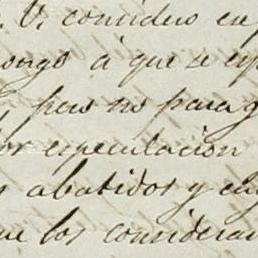 V. considero en
sorgo á que se esp
, pero no para g
or especulacion
s abatidos y en
ue los consideran